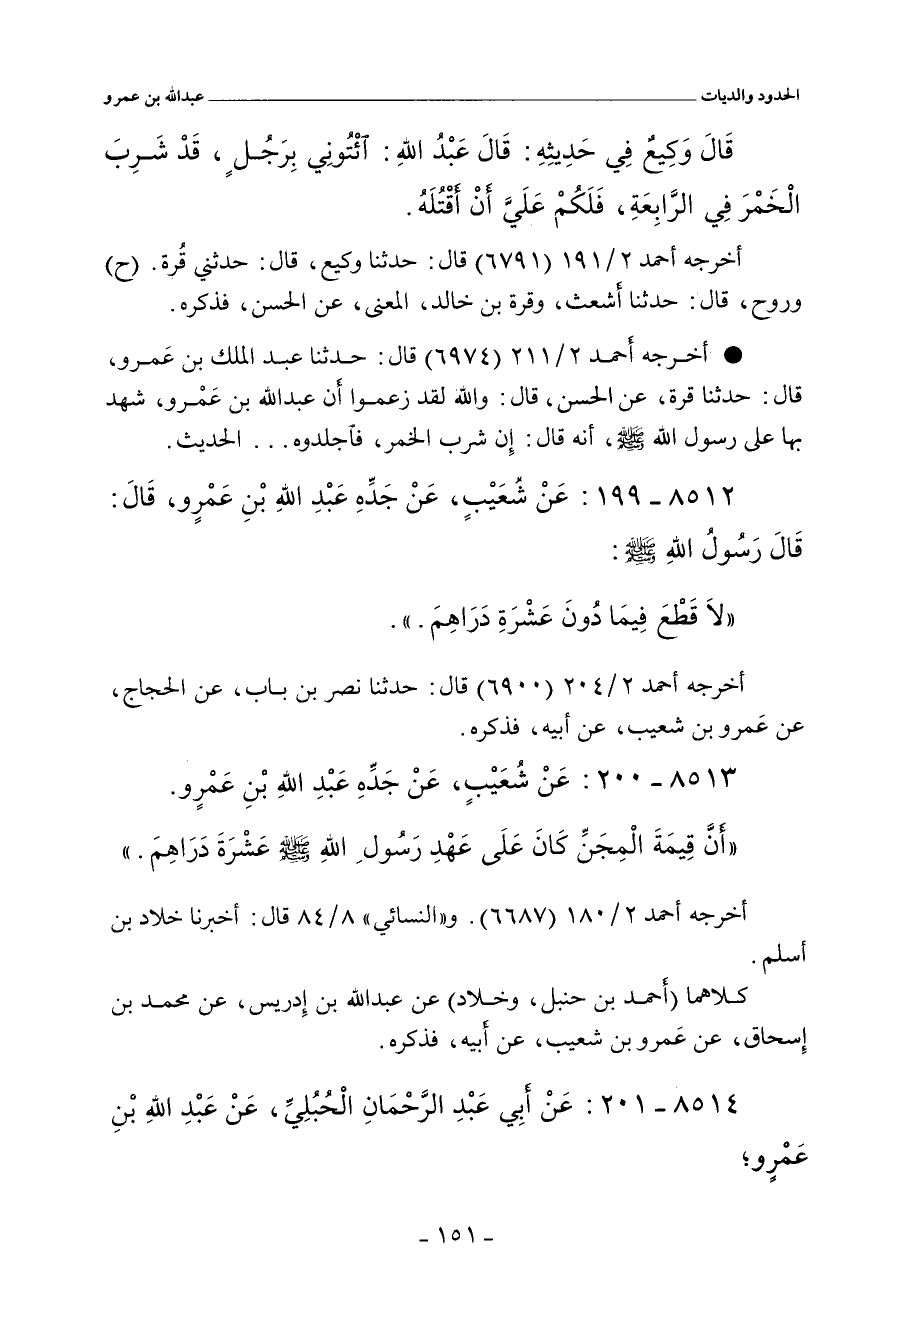 الحدود والديات ــــــــــــــــــــــــــــــــــــــــ عبدالله بن عمرو
قَالَ وَكِيعٌ فِي حَدِيثِهِ : قَالَ عَبْدُ اللهِ : ٱئْتُونِي بِرَجُلٍ ، قَدْ شَرِبَ
الْخَمْرَ فِي الرَّابِعَةِ ، فَلَكُمْ عَلَيَّ أَنْ أَقْتُلَهُ .
أخرجه أحمد ١٩١/٢ (٦٧٩١) قال : حدثنا وكيع ، قال : حدثني قُرة . (ح)
وروح ، قال : حدثنا أَشعث ، وقرة بن خالد ، المعنى ، عن الحسن ، فذكره .
● أخرجه أَحمد ٢١١/٢ (٦٩٧٤) قال : حدثنا عبد الملك بن عَمرو ،
قال : حدثنا قرة ، عن الحسن ، قال : والله لقد زعموا أَن عبدالله بن عَمْرو ، شهد
بها على رسول الله ﷺ ، أنه قال : إِن شرب الخمر ، فٱجلدوه . . . الحديث .
٨٥١٢ ـ ١٩٩ : عَنْ شُعَيْبٍ ، عَنْ جَدِّهِ عَبْدِ اللهِ بْنِ عَمْرٍو ، قَالَ :
قَالَ رَسُولُ اللهِ ﷺ :
«لاَ قَطْعَ فِيمَا دُونَ عَشْرَةِ دَرَاهِمَ . » .
أخرجه أحمد ٢٠٤/٢ (٦٩٠٠) قال : حدثنا نصر بن باب ، عن الحجاج ،
عن عَمرو بن شعيب ، عن أبيه ، فذكره .
٨٥١٣ ـ ٢٠٠ : عَنْ شُعَيْبٍ ، عَنْ جَدِّهِ عَبْدِ اللهِ بْنِ عَمْرٍو .
«أَنَّ قِيمَةَ الْمِجَنِّ كَانَ عَلَى عَهْدِ رَسُولِ اللهِ ﷺ عَشْرَةَ دَرَاهِمَ . »
أخرجه أحمد ١٨٠/٢ (٦٦٨٧) . و«النسائي» ٨٤/٨ قال : أخبرنا خلاد بن
أسلم .
كلاهما (أَحمد بن حنبل ، وخلاد) عن عبدالله بن إِدريس ، عن محمد بن
إِسحاق ، عن عَمرو بن شعيب ، عن أَبيه ، فذكره .
٨٥١٤ ـ ٢٠١ : عَنْ أَبِي عَبْدِ الرَّحْمَانِ الْحُبُلِيِّ ، عَنْ عَبْدِ اللهِ بْنِ
عَمْرٍو ؛
ـ ١٥١ ـ